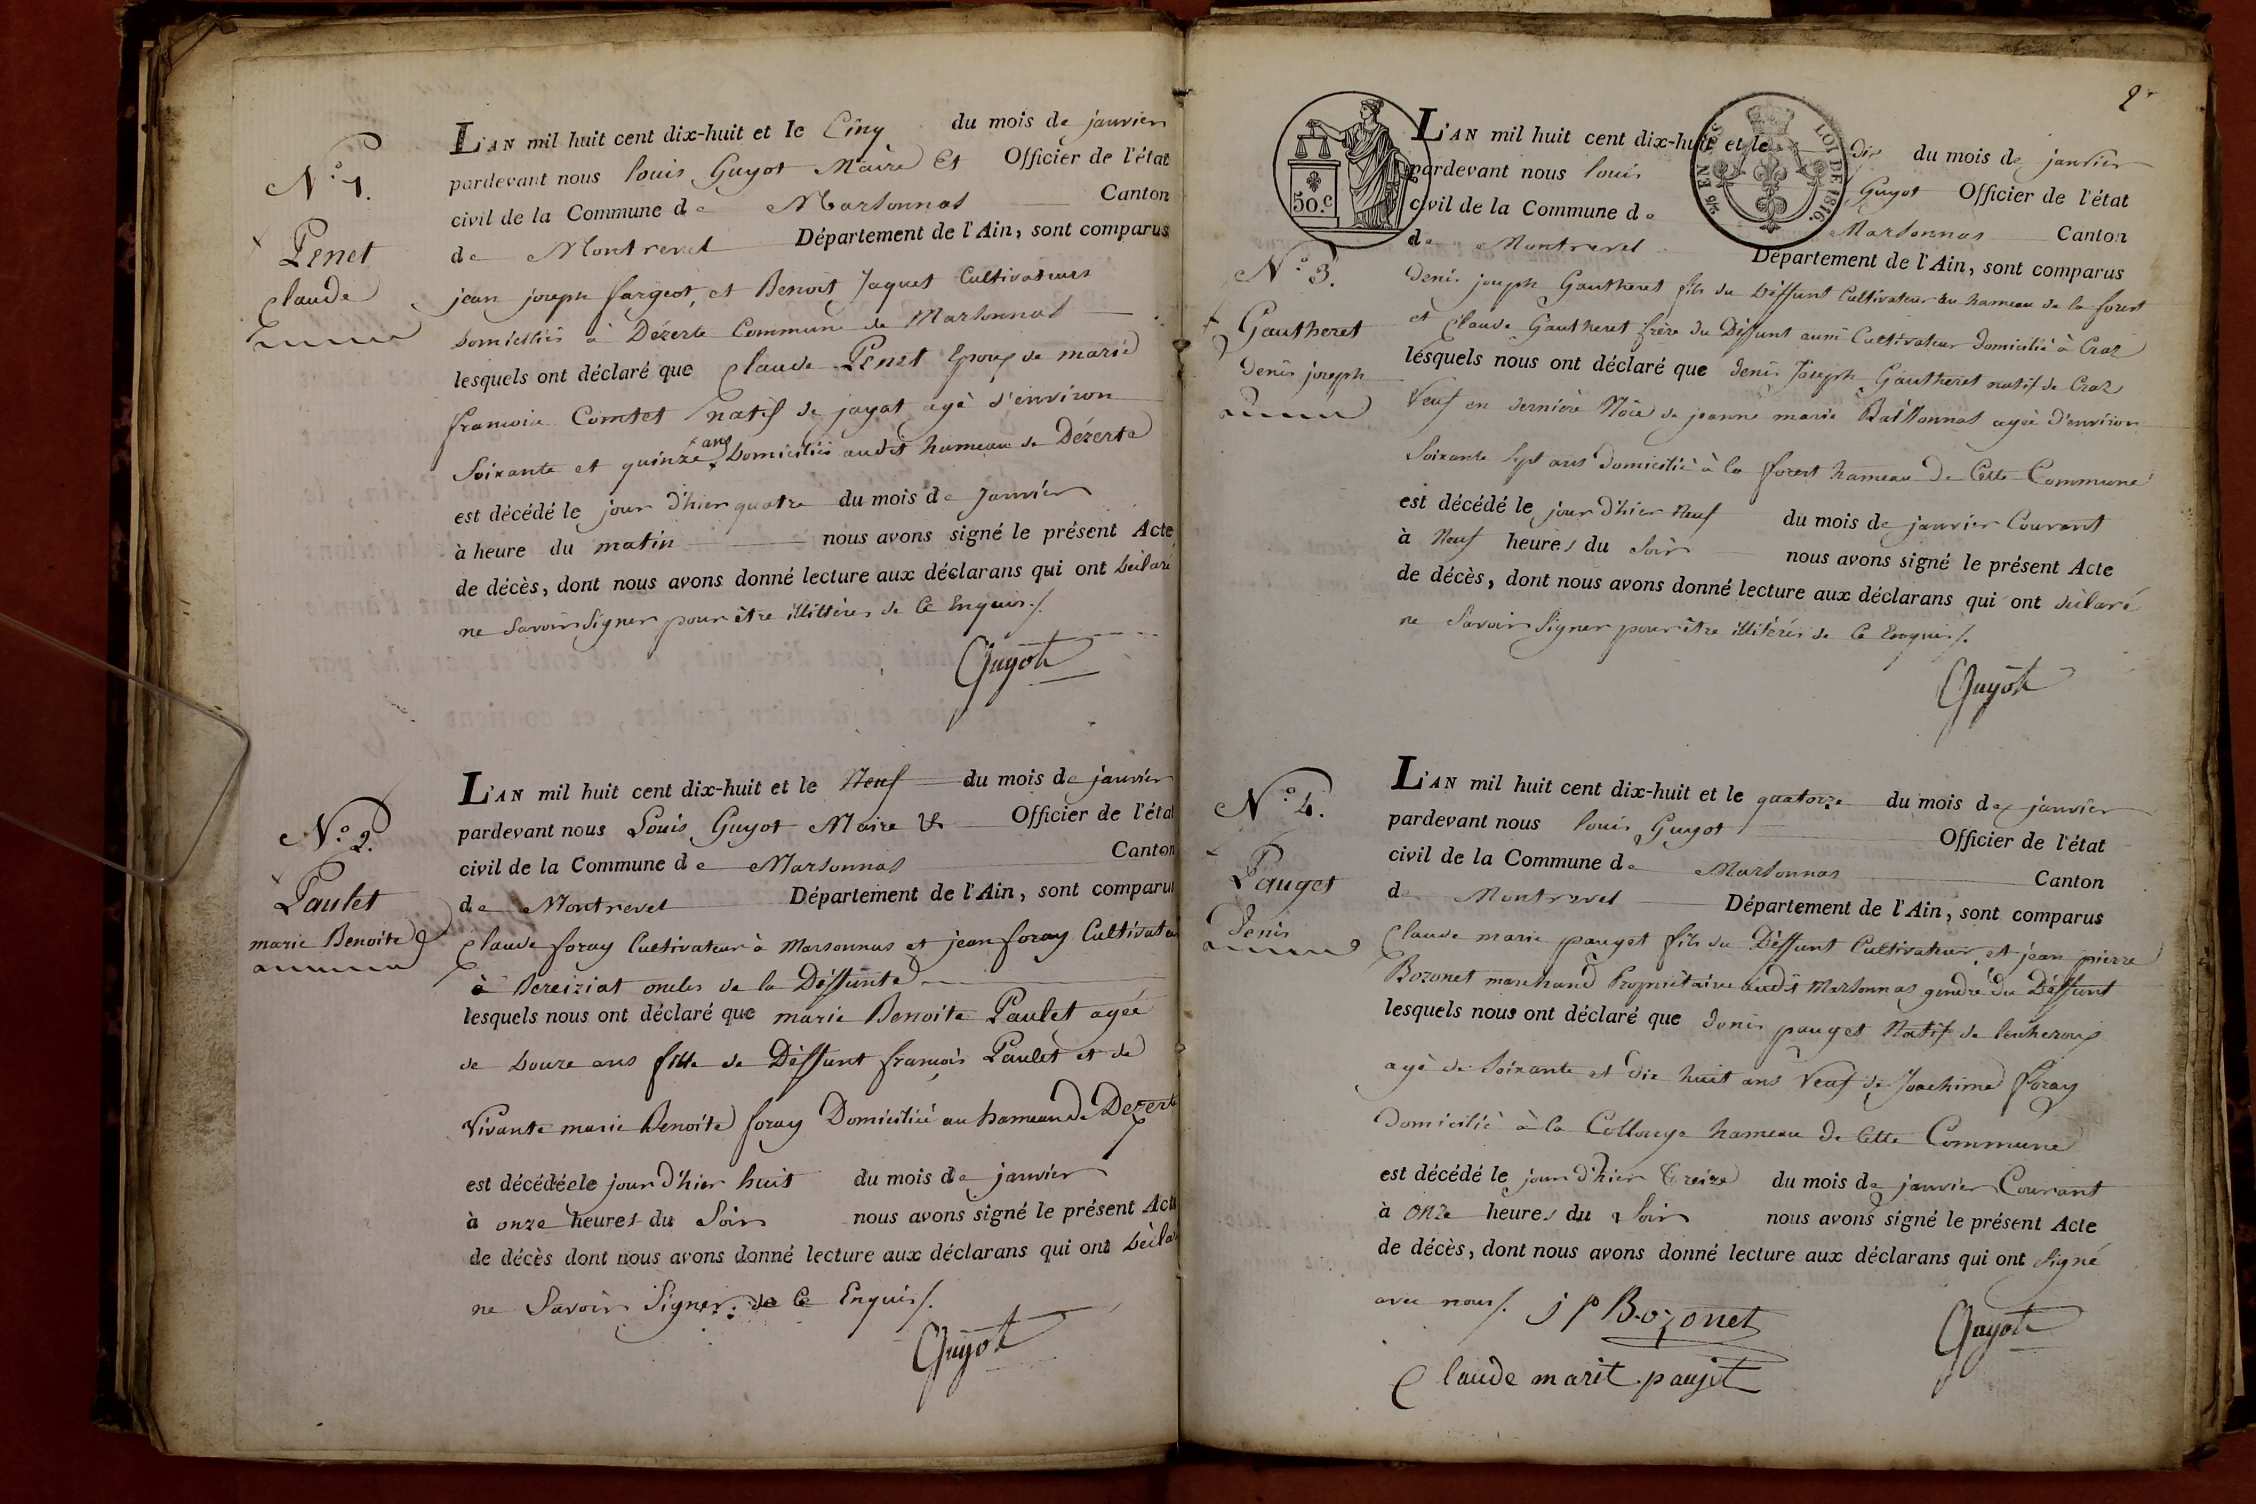 N.° 1.
Penet
Claude
L'AN mil huit cent dix-huit et le Cinq du mois de janvier
pardevant nous louis Guyot Maire Et Officier de l'état
civil de la Commune de Marsonnas Canton
de Montrevel Département de l'Ain, sont comparus
jean joseph fargeot, et Benoit Jaquet Cultivateurs
Domiciliés à Dézerte Commune de Marsonnas
lesquels ont déclaré que Claude Penet Epoux de marie
francoise Comtet natif de jayat agé d'environ
Soixante et quinze ans Domicilié audit hameau de Dézerte
est décédé le jour d'hier quatre du mois de Janvier
à heure du matin nous avons signé le présent Acte
de décès, dont nous avons donné lecture aux déclarans qui ont Déclaré
ne Savoir Signer pour être illittérés de Ce Enquis ./.
Guyot
N.° 2.
Paulet
marie Benoite
L'AN mil huit cent dix-huit et le Neuf du mois de janvier
pardevant nous Louis Guyot Maire & Officier de l'état
civil de la Commune de Marsonnas Canton
de Montrevel Département de l'Ain, sont comparus
Claude foray Cultivateur à Marsonnas et jean foray Cultivateur
à Bereiziat oncles de la Déffunte
lesquels nous ont déclaré que marie Benoite Paulet agée
de Douze ans fille de Déffunt françois Paulet et de
Vivante marie Benoite foray Domiciliée au hameau de Dezerte
est décédée le jour d'hier huit du mois de janvier
à onze heures du Soir nous avons signé le présent Acte
de décès dont nous avons donné lecture aux déclarans qui ont Déclaré
ne Savoir Signer de Ce Enquis /.
Guyot
2
50.c
2/6 EN SUS
LOI DE 1816.
N.° 3.
Gautheret
denis joseph
L'AN mil huit cent dix-huit et le dix du mois de janvier
pardevant nous louis Guyot Officier de l'état
civil de la Commune de Marsonnas Canton
de Montrevel Département de l'Ain, sont comparus
denis joseph Gautheret fils du Déffunt Cultivateur au hameau de la forest
et Claude Gautheret frère du Déffunt aussi Cultivateur Domicilié à Craz
lesquels nous ont déclaré que denis Joseph Gautheret natif de Craz
Veuf en dernière Nôce de jeanne marie agé d'environ
Soixante Sept ans Domicilié à la forest hameau de Cette Commune
est décédé le jour d'hier Neuf du mois de janvier Courant
à Neuf heures du Soir nous avons signé le présent Acte
de décès, dont nous avons donné lecture aux déclarans qui ont déclaré
ne Savoir Signer pour être illitérés de Ce Enquis /.
Guyot
N.° 4.
Pauget
Denis
L'AN mil huit cent dix-huit et le quatorze du mois de janvier
pardevant nous louis Guyot Officier de l'état
civil de la Commune de Marsonnas Canton
de Montrevel Département de l'Ain, sont comparus
Claude marie pauget fils du Déffunt Cultivateur, et jean pierre
Bozonet marchand Propriétaire audit Marsonnas gendre du Déffunt
lesquels nous ont déclaré que denis pauget Natif de
agé de Soixante et dix huit ans Veuf de Joachime foray
Domicilié à la Collonge hameau de Cette Commune
est décédé le jour d'hier Treize du mois de janvier Courant
à onze heures du Soir nous avons signé le présent Acte
de décès, dont nous avons donné lecture aux déclarans qui ont Signé
avec nous /. j p Bozonet
Guyot
Claude marit paujit